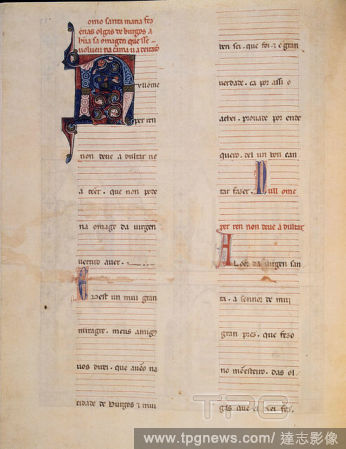 omo santa maria fez
enas olgas de burgos a
hũa sa omagen que sse
volueu na cima u a deitarõ
Null ome
per ren
non deue a dultar ne
a tẽer. que non pode
na omagẽ da uirgen
uertude auer.
Daquest un mui gran
miragre. meus amigos
uos direi. que auẽo na
cidade de Burgos e mui
ben sei. que foi e gran
uerdade. ca por assi o
achei. prouade por ende
quero. del un bon can
tar fazer. Null ome
per ren non deue a dultar
A loor da uirgen san
ta. a sennor de mui
gran pres. que fezo
no mõesteiro. das ol
gas que el Rei fez.
TPG
www.tpgnews.com/ 達志影像